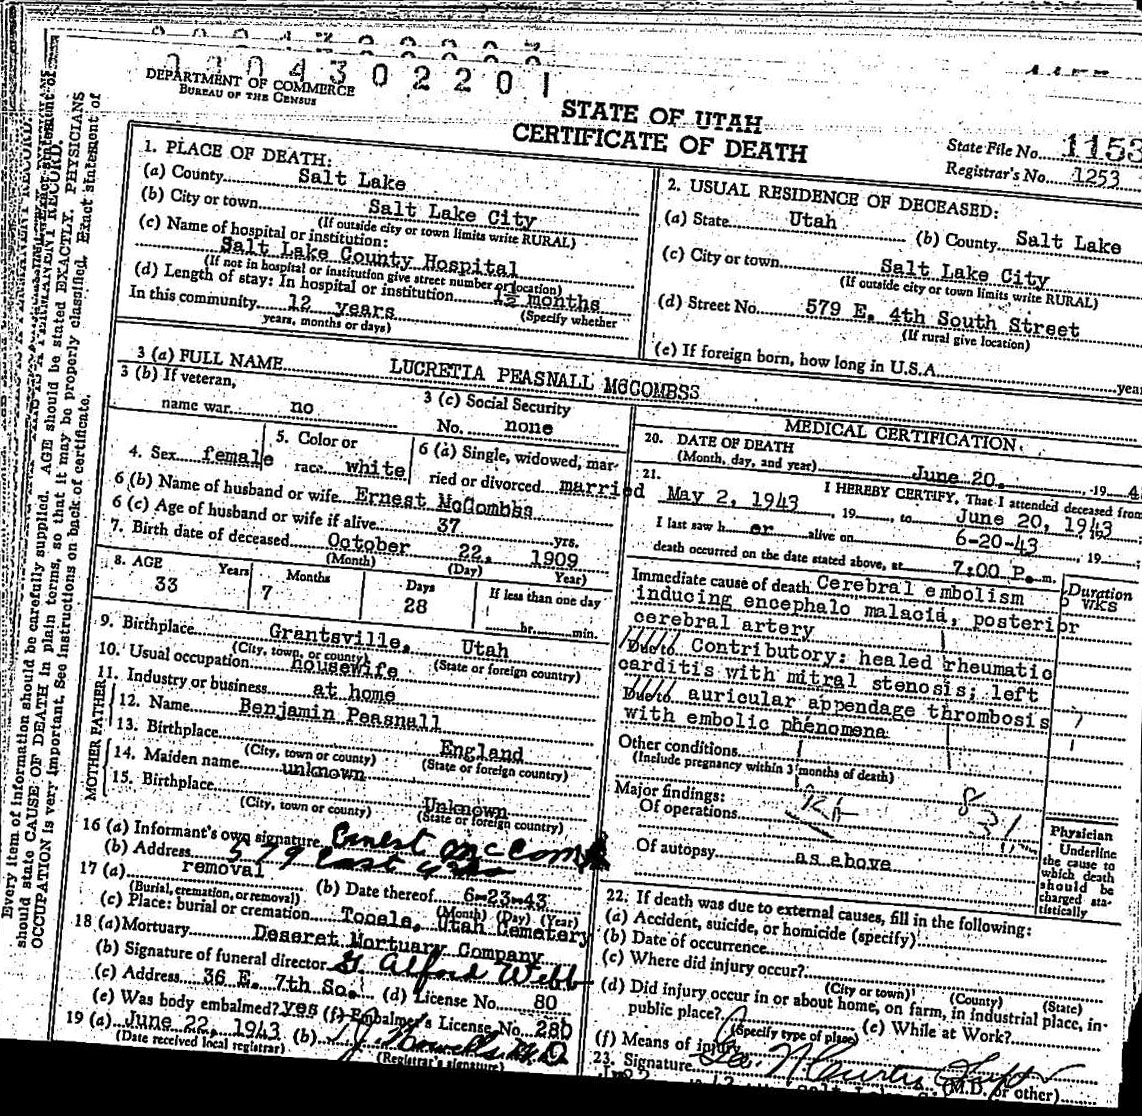 04302201
DEPARTMENT OF COMMERCE
BUREAU OF THE CENSUS
STATE OF UTAH
CERTIFICATE OF DEATH
State File No. 1153
Registrar's No. 1253
Every item of information should be carefully supplied. AGE should be stated EXACTLY. PHYSICIANS
should state CAUSE OF DEATH in plain terms, so that it may be properly classified. Exact statement of
OCCUPATION is very important. See instructions on back of certificate.
1. PLACE OF DEATH:
(a) County Salt Lake
(b) City or town Salt Lake City
(If outside city or town limits write RURAL)
(c) Name of hospital or institution:
Salt Lake County Hospital
(If not in hospital or institution give street number or location)
(d) Length of stay: In hospital or institution 1½ months
(Specify whether
In this community 12 years
years, months or days)
2. USUAL RESIDENCE OF DECEASED:
(a) State Utah (b) County Salt Lake
(c) City or town Salt Lake City
(If outside city or town limits write RURAL)
(d) Street No. 579 E. 4th South Street
(If rural give location)
(e) If foreign born, how long in U.S.A. year
3 (a) FULL NAME LUCRETIA PEASNALL MCCOMBSS
3 (b) If veteran,
name war no
3 (c) Social Security
No. none
4. Sex female
5. Color or
race white
6 (a) Single, widowed, mar-
ried or divorced married
6 (b) Name of husband or wife Ernest McCombss
6 (c) Age of husband or wife if alive 37 yrs.
7. Birth date of deceased October 22, 1909
(Month) (Day) Year)
8. AGE Years Months Days If less than one day
33 7 28 hr. min.
9. Birthplace Grantsville, Utah
(City, town, or county) (State or foreign country)
10. Usual occupation housewife
11. Industry or business at home
MOTHER FATHER
12. Name Benjamin Peasnall
13. Birthplace England
(City, town or county) (State or foreign country)
14. Maiden name unknown
15. Birthplace Unknown
(City, town or county) (State or foreign country)
16 (a) Informant's own signature Ernest McComb
(b) Address 579 East 4th So
17 (a) removal (b) Date thereof 6-23-43
(Burial, cremation, or removal) (Month) (Day) (Year)
(c) Place: burial or cremation Tooele, Utah Cemetery
18 (a) Mortuary Deseret Mortuary Company
(b) Signature of funeral director G. Alford Webb
(c) Address 36 E. 7th So. (d) License No. 80
(e) Was body embalmed? yes (f) Embalmer's License No. 280
19 (a) June 22, 1943 (b)
(Date received local registrar) (Registrar's signature)
MEDICAL CERTIFICATION
20. DATE OF DEATH
(Month, day, and year) June 20, 19 4
21. I HEREBY CERTIFY, That I attended deceased from
May 2, 1943, 19 to June 20, 1943
I last saw her alive on 6-20-43, 19
death occurred on the date stated above, at 7:00 P. m.
Duration
Immediate cause of death Cerebral embolism
inducing encephalo malacia, posterior
cerebral artery
wks
Due to Contributory: healed rheumatic
carditis with mitral stenosis; left
Due to auricular appendage thrombosis
with embolic phenomena
Other conditions
(Include pregnancy within 3 months of death)
Major findings:
Of operations
Of autopsy as above
Physician
Underline
the cause to
which death
should be
charged sta-
tistically
22. If death was due to external causes, fill in the following:
(a) Accident, suicide, or homicide (specify)
(b) Date of occurrence
(c) Where did injury occur?
(City or town) (County) (State)
(d) Did injury occur in or about home, on farm, in industrial place, in
public place? (e) While at Work?
(Specify type of place)
(f) Means of injury
23. Signature
(M.D. or other)